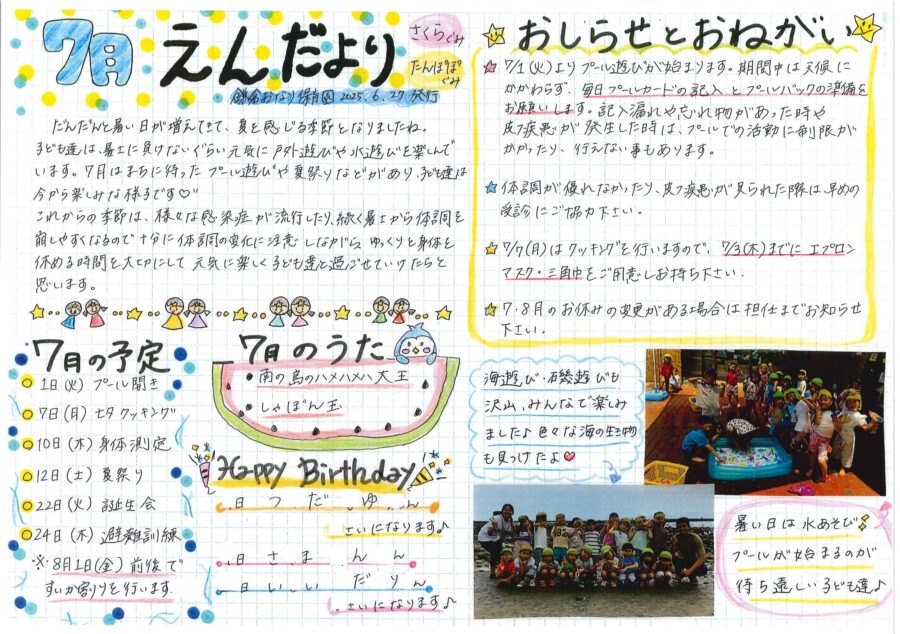 7月 えんだより
さくらぐみ
たんぽぽぐみ
鎌倉おなり保育園 2025.6.27 発行
だんだんと暑い日が増えてきて、夏を感じる季節となりましたね。
子ども達は、暑さに負けないぐらい元気に戸外遊びや水遊びを楽しんで
います。7月はまちに待ったプール遊びや夏祭りなどがあり、子ども達は
今から楽しみな様子です♡"
これからの季節は、様々な感染症が流行したり、続く暑さから体調を
崩しやすくなるので十分に体調の変化に注意しながら、ゆっくりと身体を
休める時間を大切にして元気に楽しく子ども達と過ごせていけたらと
思います。
7月の予定
1日(火) プール開き
7日(月) 七夕クッキング
10日(木) 身体測定
12日(土) 夏祭り
22日(火) 誕生会
24日(木) 避難訓練
※8月1日(金)前後で
すいか割りを行います.
7月のうた
・南の島のハメハメハ大王
・しゃぼん玉
Happy Birthday
日 つ だ ゆ ん
さいになります♪
日 さ ま ん ん
日 い い だ り ん
さいになります♪
おしらせとおねがい
☆7/1(火)よりプール遊びが始まります。期間中は天候に
かかわらず、毎日プールカードの記入とプールバックの準備を
お願いします。記入漏れや忘れ物があった時や
皮フ疾患が発生した時は、プールでの活動に制限が
かかったり、行えない事もあります。
☆体調が優れなかったり、皮フ疾患が見られた際は、早めの
受診にご協力下さい。
☆7/7(月)はクッキングを行いますので、7/3(木)までにエプロン
マスク・三角巾をご用意しお持ち下さい.
☆7・8月のお休みの変更がある場合は担任までお知らせ
下さい.
海遊び・磯遊びも
沢山、みんなで楽しみ
ました♪色々な海の生き物
も見つけたよ♥
暑い日は水あそび
プールが始まるのが
待ち遠しい子ども達♪